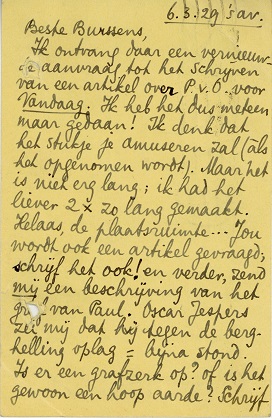 6.3.29 's av.
Beste Burssens,
Ik ontvang daar een vernieuw-
de aanvraag tot het schrijven
van een artikel over P.v.O. voor
Vandaag. Ik heb het dus meteen
maar gedaan! Ik denk dat
het stukje je amuseren zal (als
het opgenomen wordt). Maar het
is niet erg lang; ik had het
liever 2 x zo lang gemaakt.
Helaas, de plaatsruimte... Jou
wordt ook een artikel gevraagd;
schrijf het ook! en verder, zend
mij een beschrijving van het
graf van Paul. Oscar Jespers
zei mij dat hij tegen de berg-
helling oplag = bijna stond.
Is er een grafzerk op? of is het
gewoon een hoop aarde? Schrijf